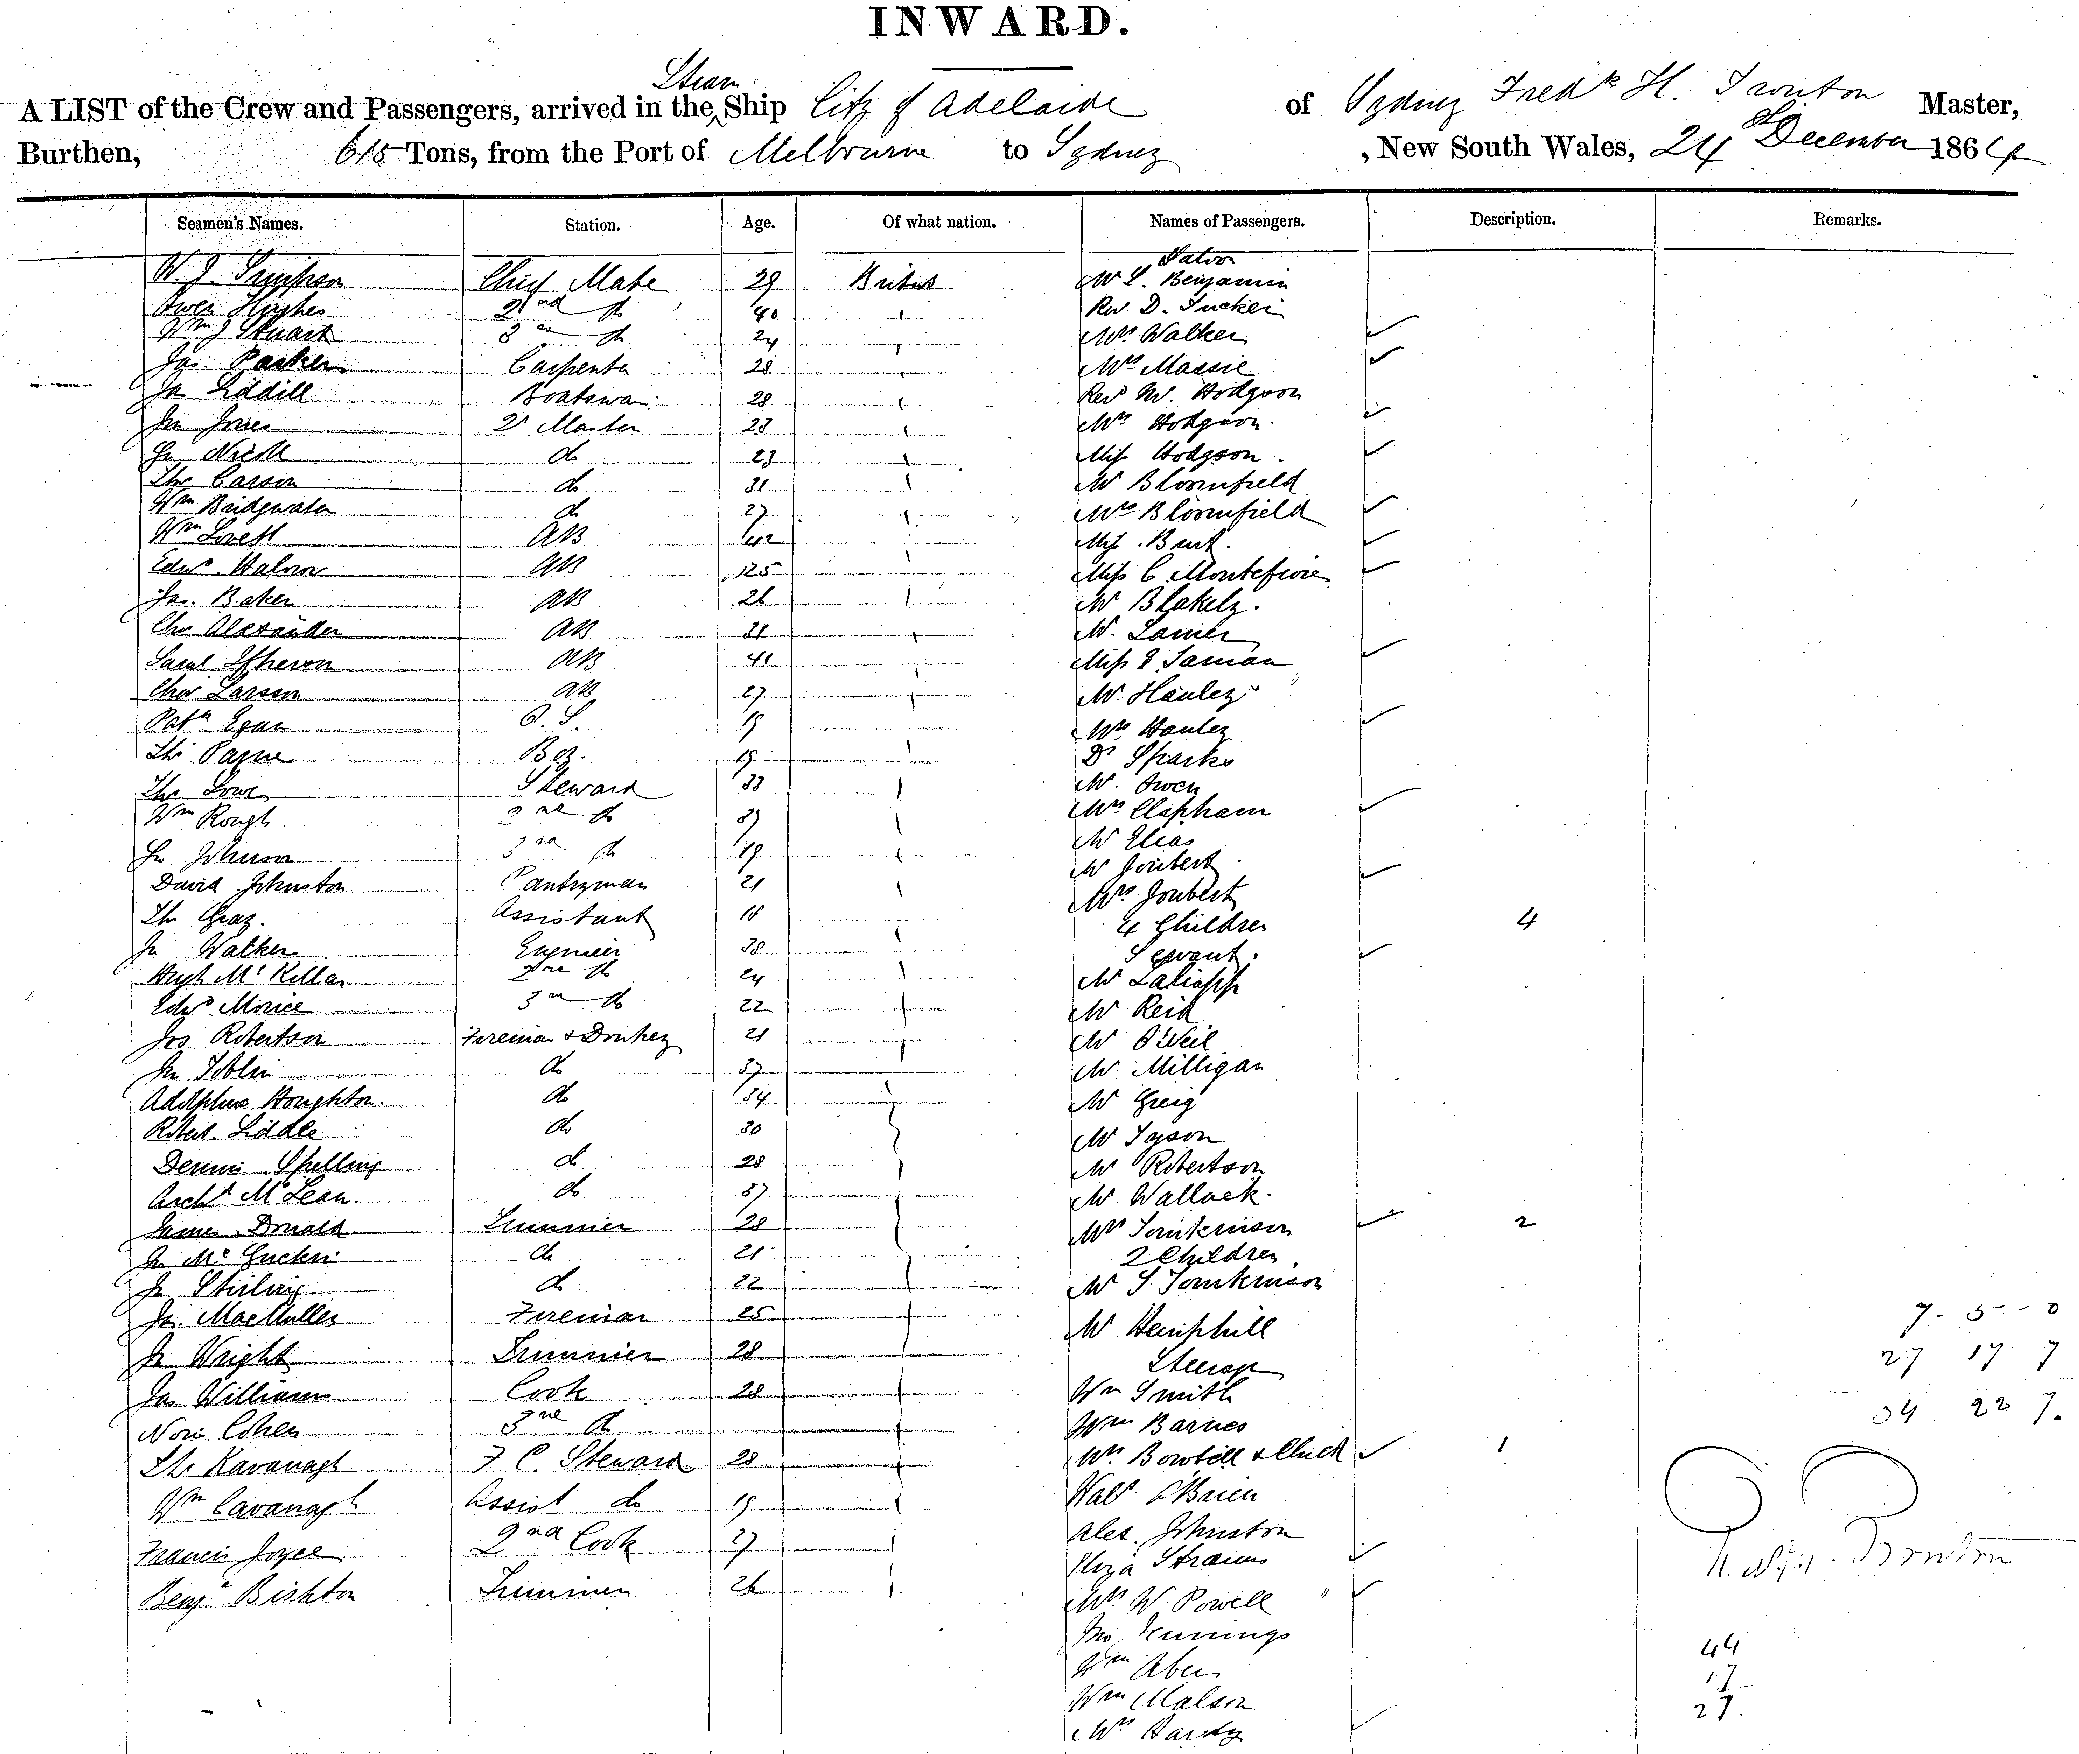 INWARD.
Steam
A LIST of the Crew and Passengers, arrived in the Ship City of Adelaide of Sydney Fredk H. Trouton Master,
Burthen, 615 Tons, from the Port of Melbourne to Sydney , New South Wales, 24 December 1864
Seamen's Names. Station. Age. Of what nation. Names of Passengers. Description. Remarks.
Saloon
W J Simpson Chief Mate 29 British Mr L. Benjamin
Owen Hughes 2nd do 40 Rev D. Tucker
Wm J Stuart 3rd do 24 Mrs Walker
Parker Carpenter 28 Mrs Massie
Liddill Boatswain 28 Rev W. Hodgson
Jones Qr Master 23 Mrs Hodgson
Nicoll do 23 Miss Hodgson
Carson do 31 Mr Bloomfield
Wm Bridgwater do 27 Mrs Bloomfield
Wm Lovett AB 42 Miss Burt
Edwd AB 25 Miss C Montefiore
Jas. Baker AB 26 Mr Blakely.
Chs Alexander AB 31 Mr
Saml AB 41 Miss
Chas Larsen AB 27 Mr Hanley
Patk Egan O. S. 19 Mrs Hanley
Thos Payne Boy. 19 Dr Sparks
Thos Steward 33 Mr Owen
Wm Rough 2nd do 37 Mrs Clapham
Jn Johnson 3rd do 19 Mr Elias
Mr Joubert
David Johnston Pantryman 21 Mrs Joubert
Thos Gray. Assistant 18 4 Children 4
Jn Walker Engineer 38 Servant.
Hugh McKellar 2nd do 24 Mr
Edwd Morice 3rd do 22 Mr Reid
Jos Robertson Fireman & Donkey 21 Mr O'Neil
Jn Toblin do 37 Mr Milligan
Adolphus Houghton do 34 Mr Greig
Robert Liddle do 30 Mr Tyson
Dennis Spelling do 28 Mr Robertson
Archd McLean do 37 Mr Wallack.
James Donald Trimmer 28 Mrs Tomkinson 2
Jn McGuckin do 21 2 Children
Jn Stirling do 22 Mr S Tomkinson
MacMullen Fireman 25 Mr Hemphill 7 - 5 - 0
Jn Wright Trimmer 28 Steerage 27 17 7
Jas Williams Cook 28 Wm Smith 34 22 7.
Cohen 3rd do Wm Barnes
Thos Kavanagh F C. Steward 28 Mrs Bowtell & Child 1
Wm Cavanagh Assist do 19 Walt O'Brien
Francis Joyce 2nd Cook 27 Alex. Johnston
Eliza
Benj Bishton Trimmer 26 Mrs W Powell
Jno Jennings 44
Wm 17
Wm Malson 27.
Mrs Hardy